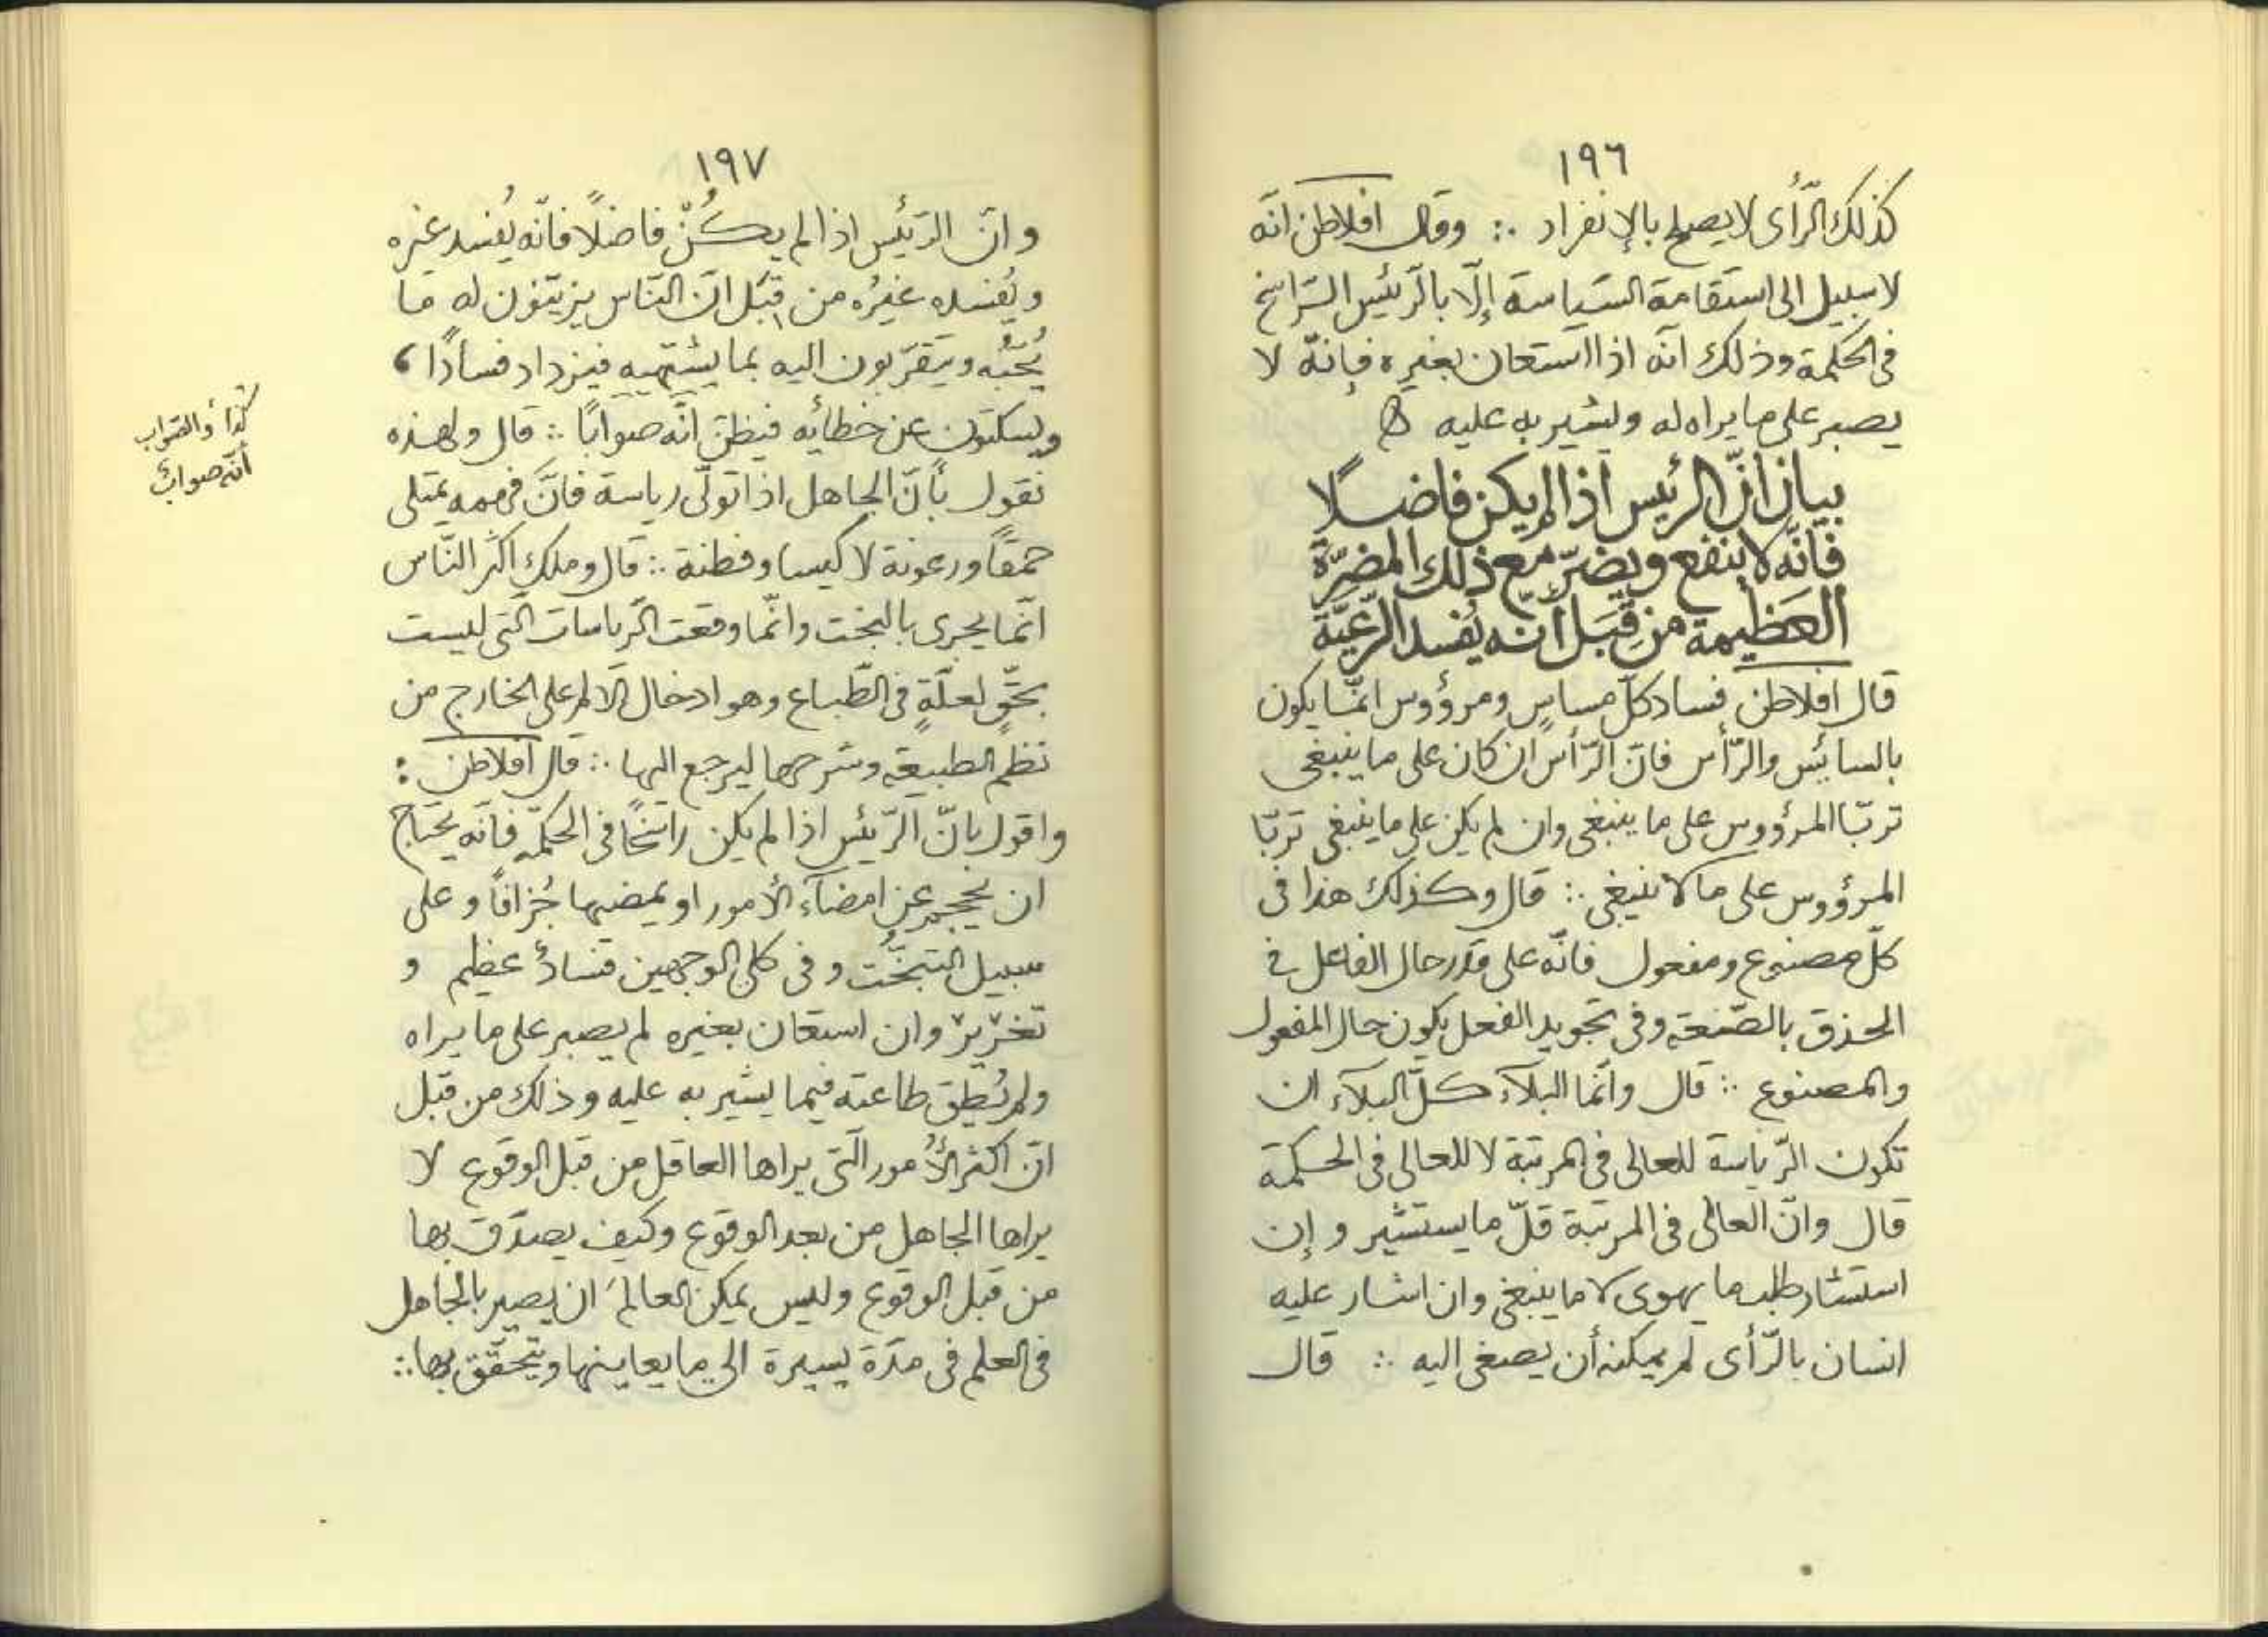 ١٩٦
كذلك الرّأى لا يصلح بالإنفراد ∴ وقال افلاطن انّه
لا سبيل الى استقامة السّياسة إلّا بالرّئيس الرّاسخ
فى الحكمة وذلك انّه اذا استعان بغيره فإنّه لا
يصبر على ما يراه له ويشير به عليه
بيان انّ الرئيس اذا لم يكن فاضلًا
فانّه لا ينفع ويضرّ مع ذلك المضرّة
العظيمة من قِبَل أنه يُفسد الرّعيّة
قال افلاطن فساد كلّ مساس ومرؤوس انمّا يكون
بالسائس والرّأس فانّ الرّأس ان كان على ما ينبغى
تربّا المرؤوس على ما ينبغى وان لم يكن على ما ينبغى تربّا
المرؤوس على ما لا ينبغى ∴ قال وكذلك هذا فى
كلّ مصنوع ومفعول فانّه على قدر حال الفاعل فى
الحذق بالصّنعة وفى تجويد الفعل يكون حال المفعول
والمصنوع ∴ قال وانّما البلآء كلّ البلآء ان
تكون الرّياسة للعالى فى المرتبة لا للعالى فى الحكمة
قال وانّ العالى فى المرتبة قلّ ما يستشير وإن
استشار طلب ما يهوى لا ما ينبغى وان اشار عليه
انسان بالرّأى لم يمكنه أن يصغى اليه ∴ قال
١٩٧
وانّ الرّئيس اذا لم يكُنْ فاضلًا فانّه يُفسد غيره
ويُفسده غيرُه من قِبَل انّ النّاس يزيّنون له ما
يُحبّه ويتقرّبون اليه بما يشتهيه فيزداد فسادًا ،
ويسكتون عن خطائه فيظنّ انّه صوابًا ∴ قال ولهذه
نقول بأنّ الجاهل اذا تولّى رياسة فانّ فهمه يمتلى
حمقًا ورعونة لا كيسا وفطنة ∴ قال وملك اكثر النّاس
انّما يجرى بالبخت وانّما وقعت الرّياسات الّتى ليست
بحقٍّ لعلّةٍ فى الطّباع وهو ادخال الالم على الخارج من
نظم الطبيعة وشرحها ليرجع اليها ∴ قال افلاطن :
واقول بانّ الرّئيس اذا لم يكن راسخًا فى الحكمة فانّه يحتاج
ان يحجم عن امضآء الأمور او يمضيها جُزافًا وعلى
سبيل التبخّت وفى كلى الوجهين فسادٌ عظيم و
تغرير وان استعان بغيره لم يصبر على ما يراه
ولم يُطِق طاعته فيما يشير به عليه وذلك من قبل
انّ اكثر الأُمور الّتى يراها العاقل من قبل الوقوع لا
يراها الجاهل من بعد الوقوع وكيف يصدّق بها
من قبل الوقوع وليس يمكن العالمُ ان يصير بالجاهل
فى العلم فى مدّة يسيرة الى ما يعاينها ويتحقّق بها ∴
كذا والصّواب
أنّه صوابٌ